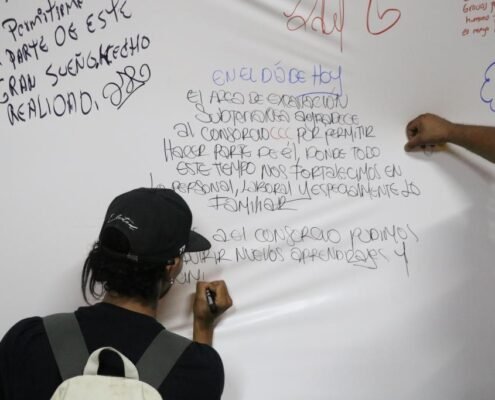 Permitirme
PARTE DE ESTE
GRAN SUEÑO HECHO
REALIDAD.
Gracias
EN EL DÍA DE HOY
EL AREA DE EXCAVACIÓN
SUBTERRANEA AGRADECE
al CONSORCIO CCC POR PERMITIR
HACER PARTE DE ÉL, DONDE TODO
ESTE TIEMPO NOS FORTALECIMOS EN
LO PERSONAL, LABORAL Y ESPECIALMENTE LO
FAMILIAR
al CONSORCIO PUDIMOS
NUEVOS APRENDIZAJES Y